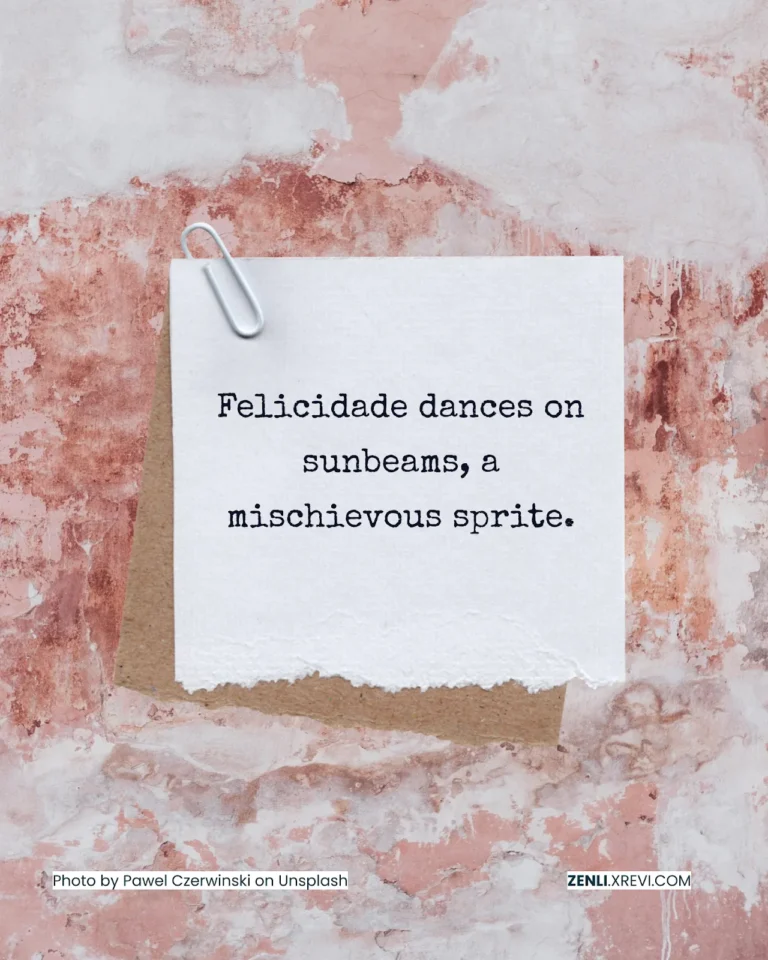 Felicidade dances on
sunbeams, a
mischievous sprite.
Photo by Pawel Czerwinski on Unsplash
ZENLI.XREVI.COM